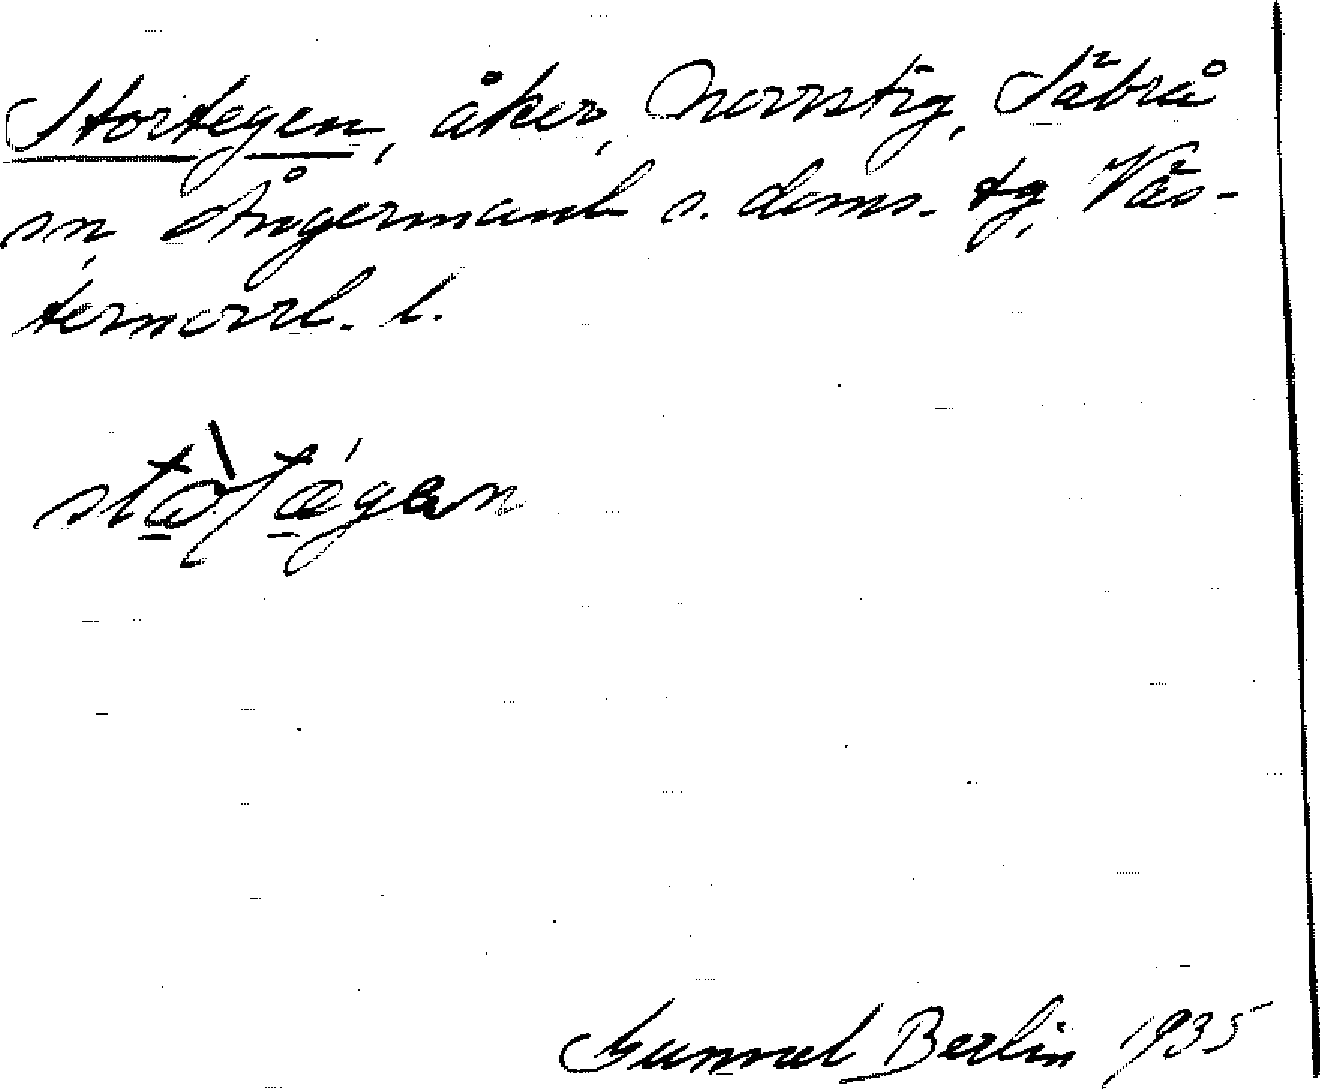 Stortegen, åker, Norrstig, Säbrå
sn, Ångermanl. s. doms. tg, Väs-
ternorrl. l.
Gunnel Berlin 1935